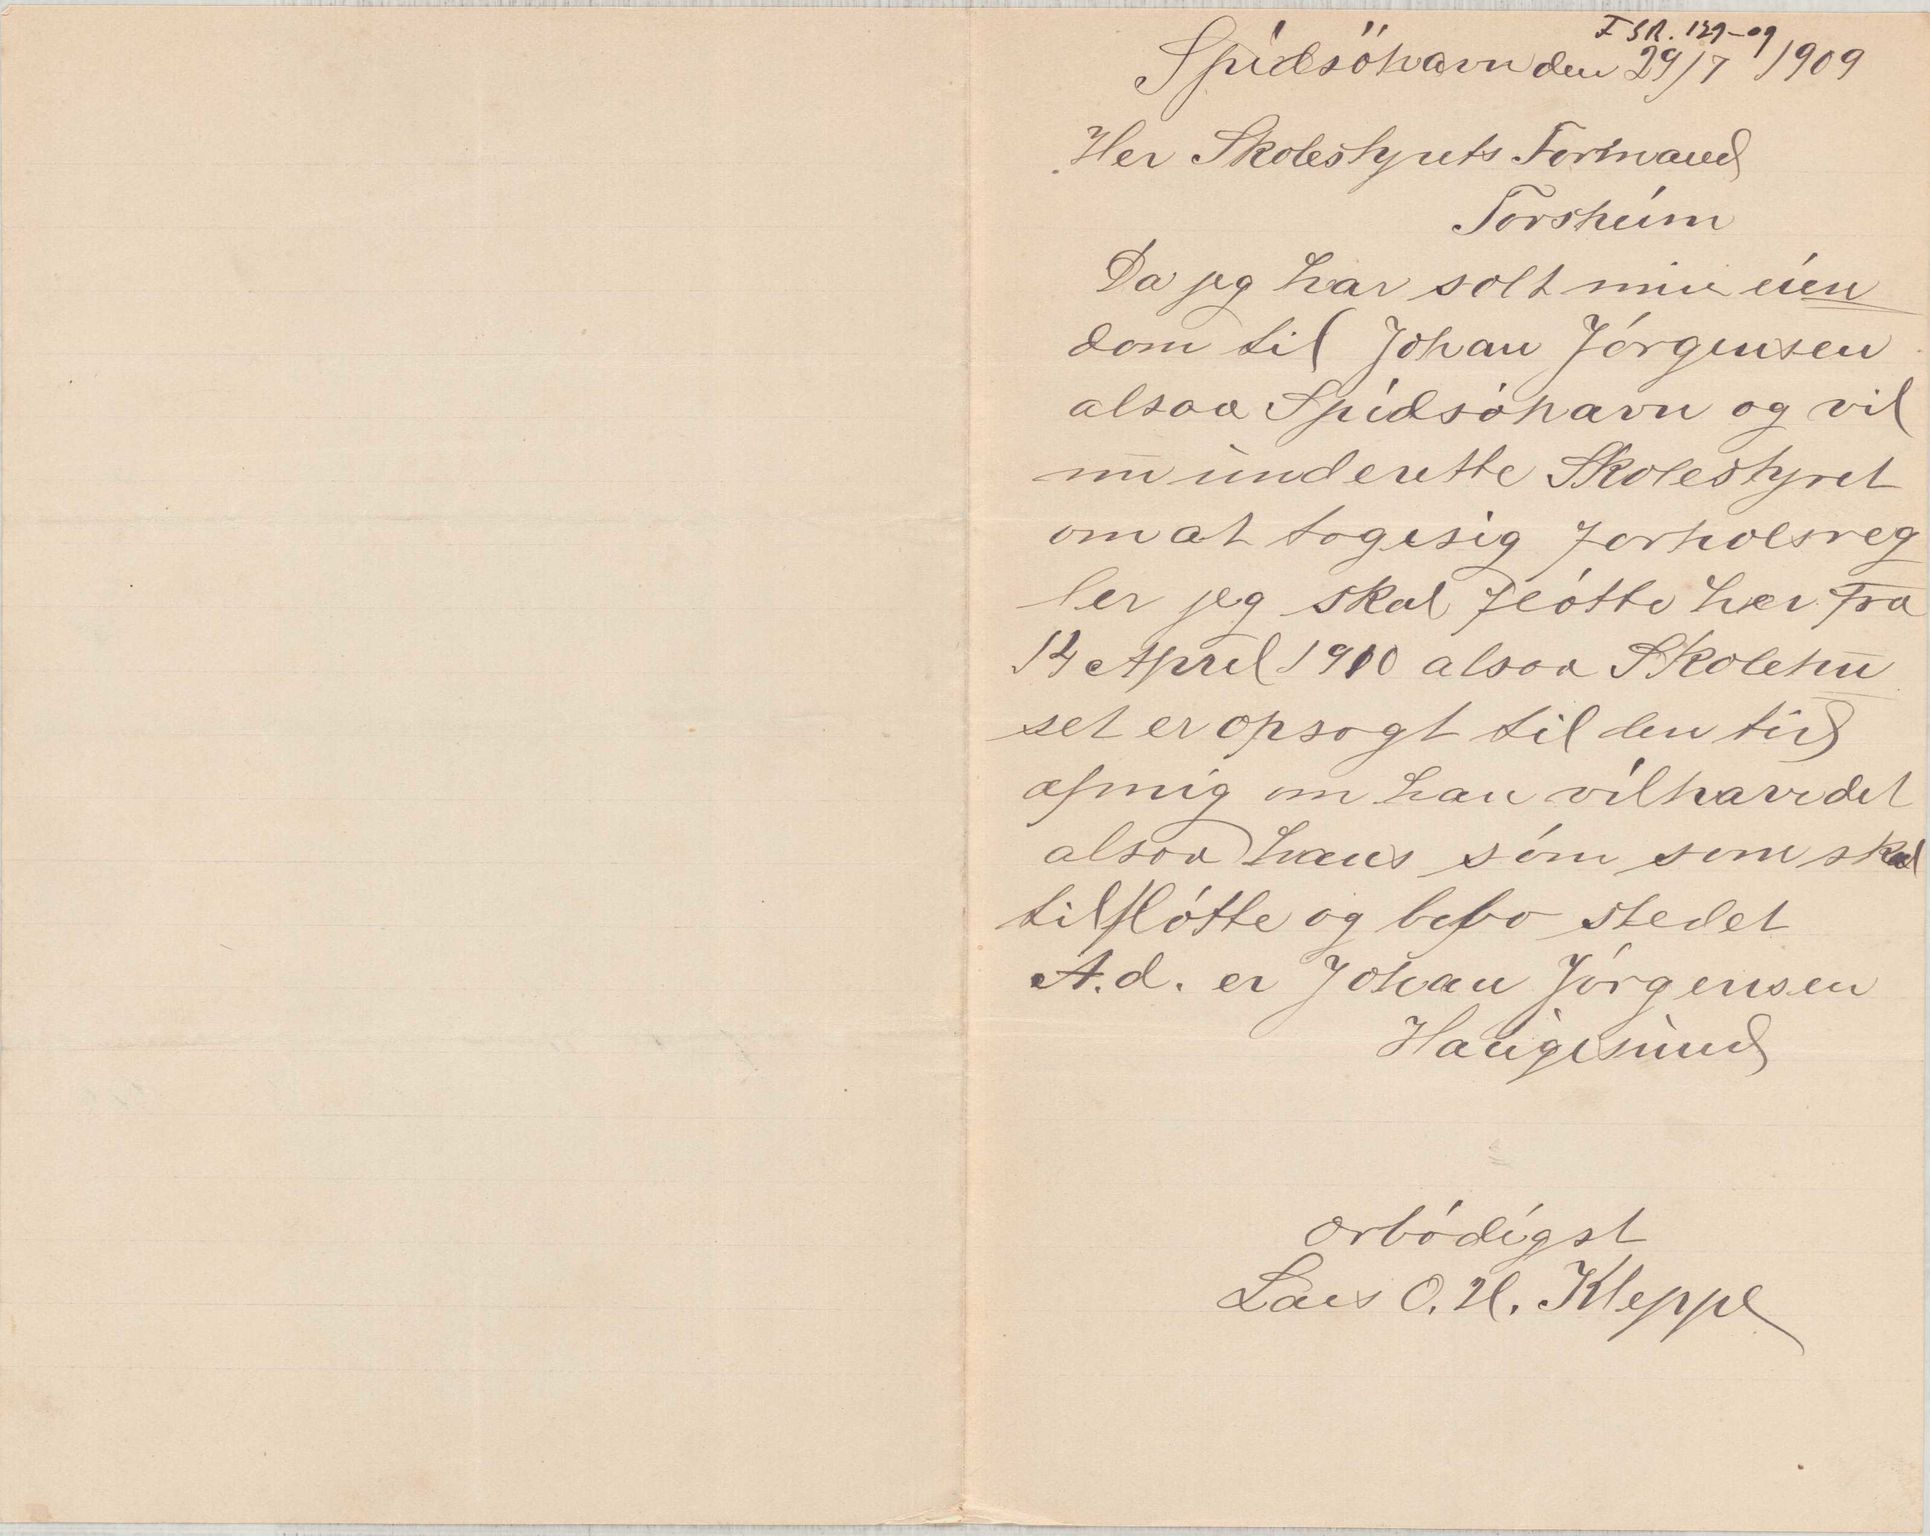 F SR. 129-09
Spidsöhavn den 29/7 1909
Her Skolestyrets Formand
Forsheim
Da jeg har solt min eien
dom til Johan Jórgensen
alsaa Spidsóhavn og vil
nu underette Skolestyret
om at tagesig forholsreg
ler jeg skal flótte her fra
14 April 1910 alsaa Skolehu
set er opsagt til den tid
afmig om han vil have det
alsaa hans són som skal
tilflótte og bebo stedet
A.d. er Johan Jórgensen
Haugesund
ærbódigst
Lars O. H. Kleppe